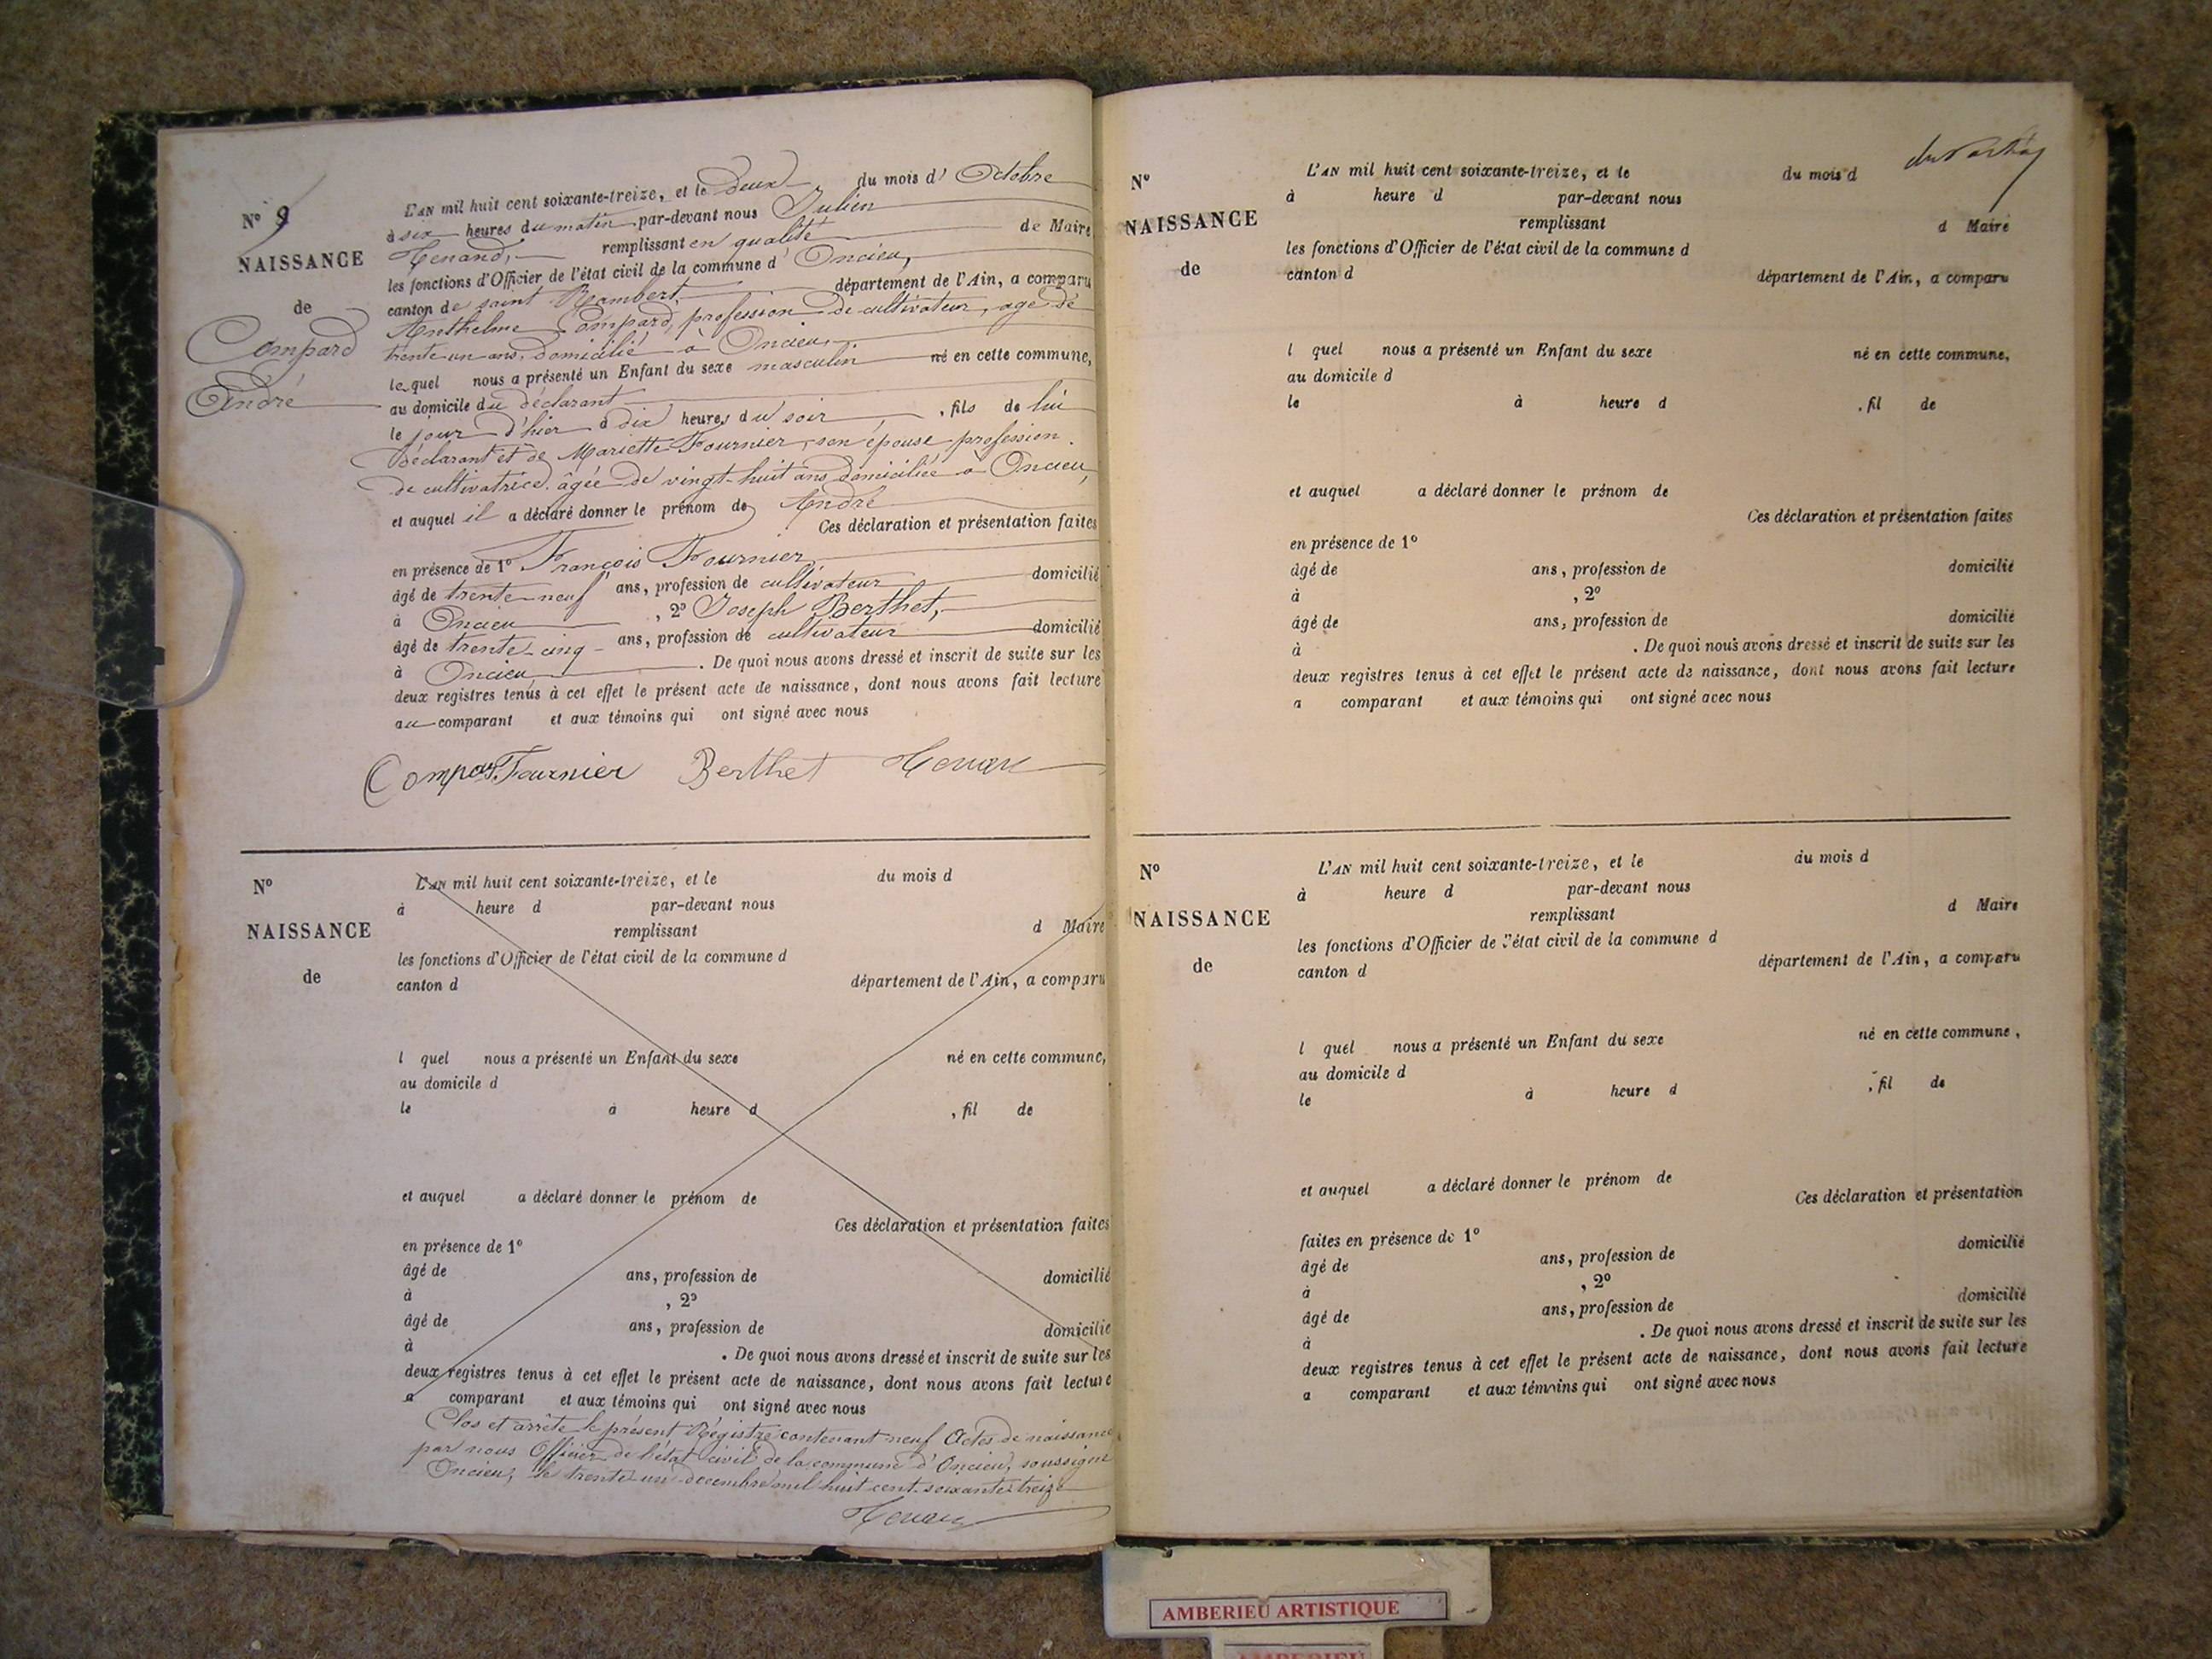 N° 9
NAISSANCE
de
Compard
André
L'AN mil huit cent soixante-treize, et le deux du mois d' Octobre
à six heures du matin par-devant nous Julien
Henand, remplissant en qualité de Maire
les fonctions d'Officier de l'état civil de la commune d' Oncieu,
canton de saint Rambert département de l'Ain, a comparu
Anthelme Compard, profession de cultivateur, agé de
trente un ans, domicilié à Oncieu
lequel nous a présenté un Enfant du sexe masculin né en cette commune,
au domicile du déclarant
le jour d'hier à dix heures du soir , fils de lui
Déclarant et de Mariette Fournier, son épouse profession
de cultivatrice âgée de vingt-huit ans domiciliée à Oncieu,
et auquel il a déclaré donner le prénom de André
Ces déclaration et présentation faites
en présence de 1° François Fournier
âgé de trente-neuf ans, profession de cultivateur domicilié
à Oncieu , 2° Joseph Berthet,
âgé de trente-cinq ans, profession de cultivateur domicilié
à Oncieu . De quoi nous avons dressé et inscrit de suite sur les
deux registres tenus à cet effet le présent acte de naissance, dont nous avons fait lecture
au comparant et aux témoins qui ont signé avec nous
Fournier Berthet
N°
NAISSANCE
de
L'AN mil huit cent soixante-treize, et le du mois d
à heure d par-devant nous
remplissant d Maire
les fonctions d'Officier de l'état civil de la commune d
canton d département de l'Ain, a comparu
l quel nous a présenté un Enfant du sexe né en cette commune,
au domicile d
le à heure d , fil de
et auquel a déclaré donner le prénom de
Ces déclaration et présentation faites
en présence de 1°
âgé de ans, profession de domicilié
à , 2°
âgé de ans, profession de domicilié
à . De quoi nous avons dressé et inscrit de suite sur les
deux registres tenus à cet effet le présent acte de naissance, dont nous avons fait lecture
a comparant et aux témoins qui ont signé avec nous
Clos et arrêté le présent Régistre contenant neuf Actes de naissance
par nous Officier de l'état civil de la commune d'Oncieu, soussigné
Oncieu, le trente un decembre mil huit cent soixante treize
N°
NAISSANCE
de
L'AN mil huit cent soixante-treize, et le du mois d
à heure d par-devant nous
remplissant d Maire
les fonctions d'Officier de l'état civil de la commune d
canton d département de l'Ain, a comparu
l quel nous a présenté un Enfant du sexe né en cette commune,
au domicile d
le à heure d , fil de
et auquel a déclaré donner le prénom de
Ces déclaration et présentation faites
en présence de 1°
âgé de ans, profession de domicilié
à , 2°
âgé de ans, profession de domicilié
à . De quoi nous avons dressé et inscrit de suite sur les
deux registres tenus à cet effet le présent acte de naissance, dont nous avons fait lecture
a comparant et aux témoins qui ont signé avec nous
N°
NAISSANCE
de
L'AN mil huit cent soixante-treize, et le du mois d
à heure d par-devant nous
remplissant d Maire
les fonctions d'Officier de l'état civil de la commune d
canton d département de l'Ain, a comparu
l quel nous a présenté un Enfant du sexe né en cette commune,
au domicile d
le à heure d , fil de
et auquel a déclaré donner le prénom de
Ces déclaration et présentation
faites en présence de 1°
âgé de ans, profession de domicilié
à , 2°
âgé de ans, profession de domicilié
à . De quoi nous avons dressé et inscrit de suite sur les
deux registres tenus à cet effet le présent acte de naissance, dont nous avons fait lecture
a comparant et aux témoins qui ont signé avec nous
AMBERIEU ARTISTIQUE
AMBERIEU